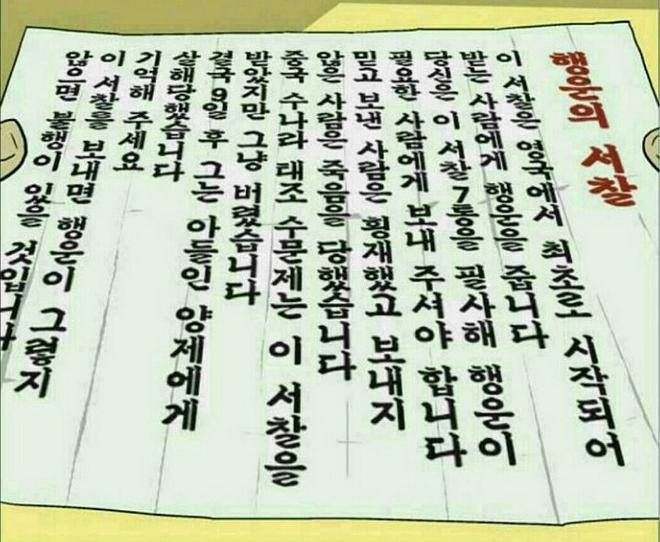 행운의 서찰
이 서찰은 영국에서 최초로 시작되어
받는 사람에게 행운을 줍니다
당신은 이 서찰 7통을 필사해 행운이
필요한 사람에게 보내 주셔야 합니다
믿고 보낸 사람은 횡재했고 보내지
않은 사람은 죽음을 당했습니다
중국 수나라 태조 수문제는 이 서찰을
받았지만 그냥 버렸습니다
결국 9일 후 그는 아들인 양제에게
살해당했습니다
기억해 주세요
이 서찰를 보내면 행운이 그렇지
않으면 불행이 있을 것입니다